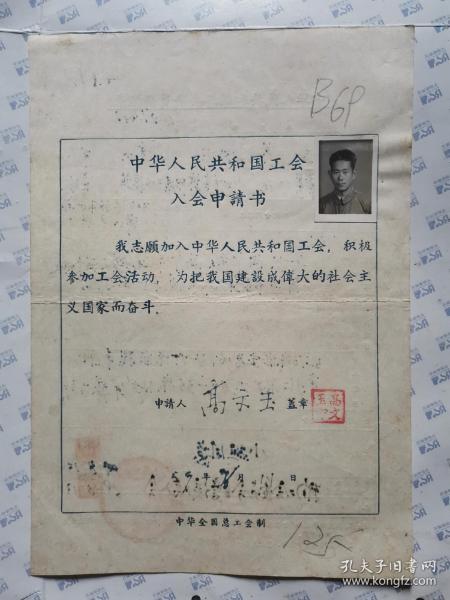 B69
中华人民共和国工会
入会申請书
我志願加入中华人民共和国工会，积极
参加工会活动，为把我国建設成偉大的社会主
义国家而奋斗．
申請人 高文玉 盖章
高文
年 月 日
中华全国总工会制
125
孔夫子旧书网
www.kongfz.com